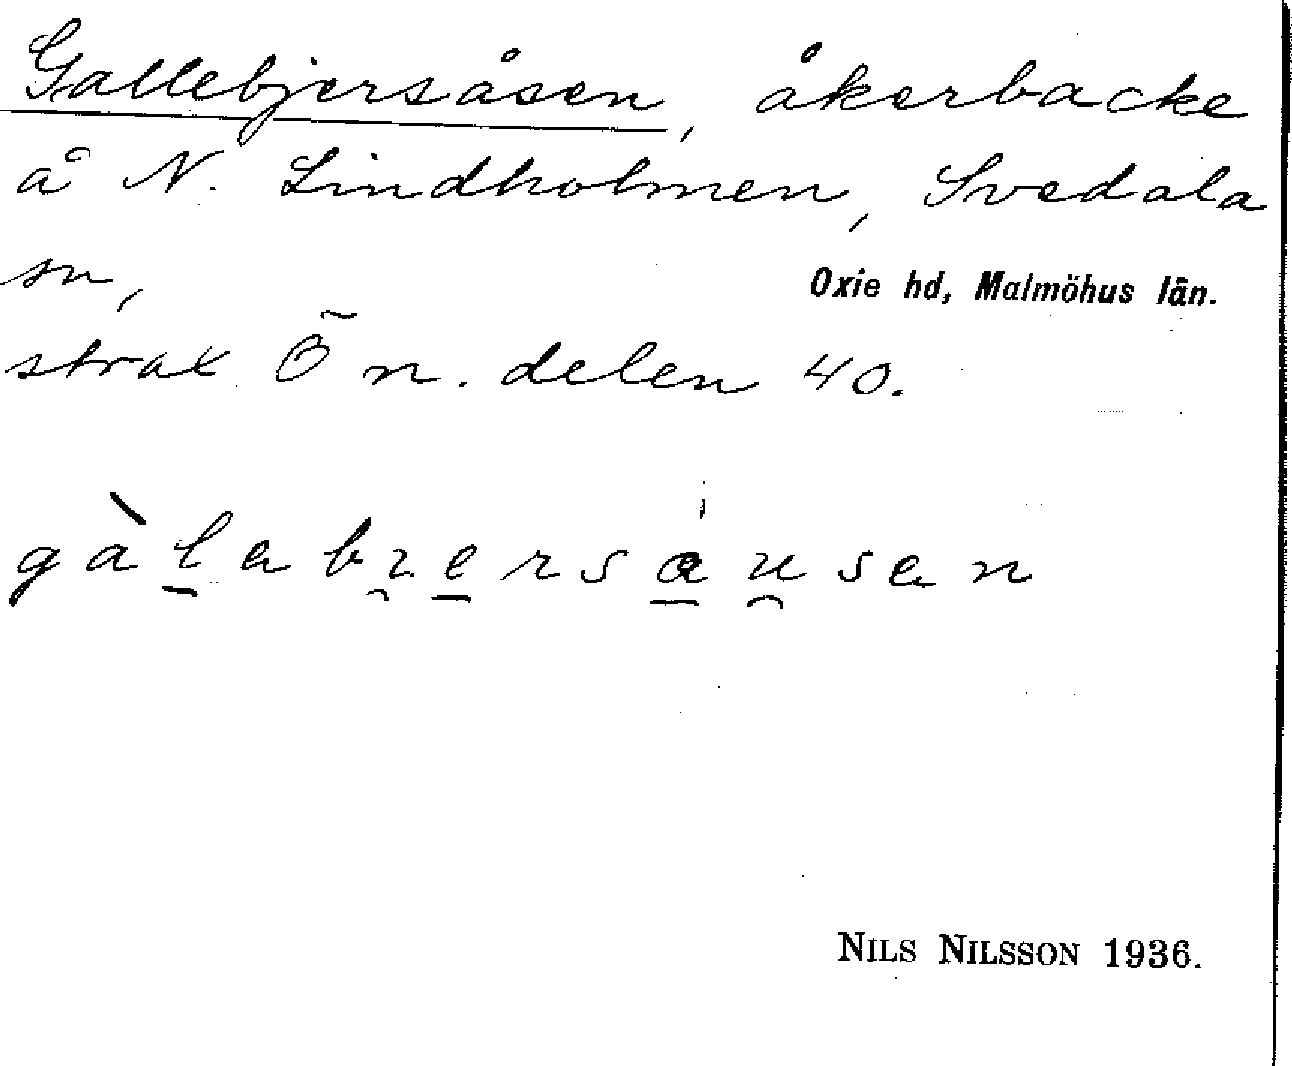 Gallebjersåsen, åkerbacke
å N. Lindholmen, Svedala
sn,
Oxie hd, Malmöhus län.
strax Ö n. delen 40.
gàl̠abi̯e̠rsa̠̍u̯sen
NILS NILSSON 1936.